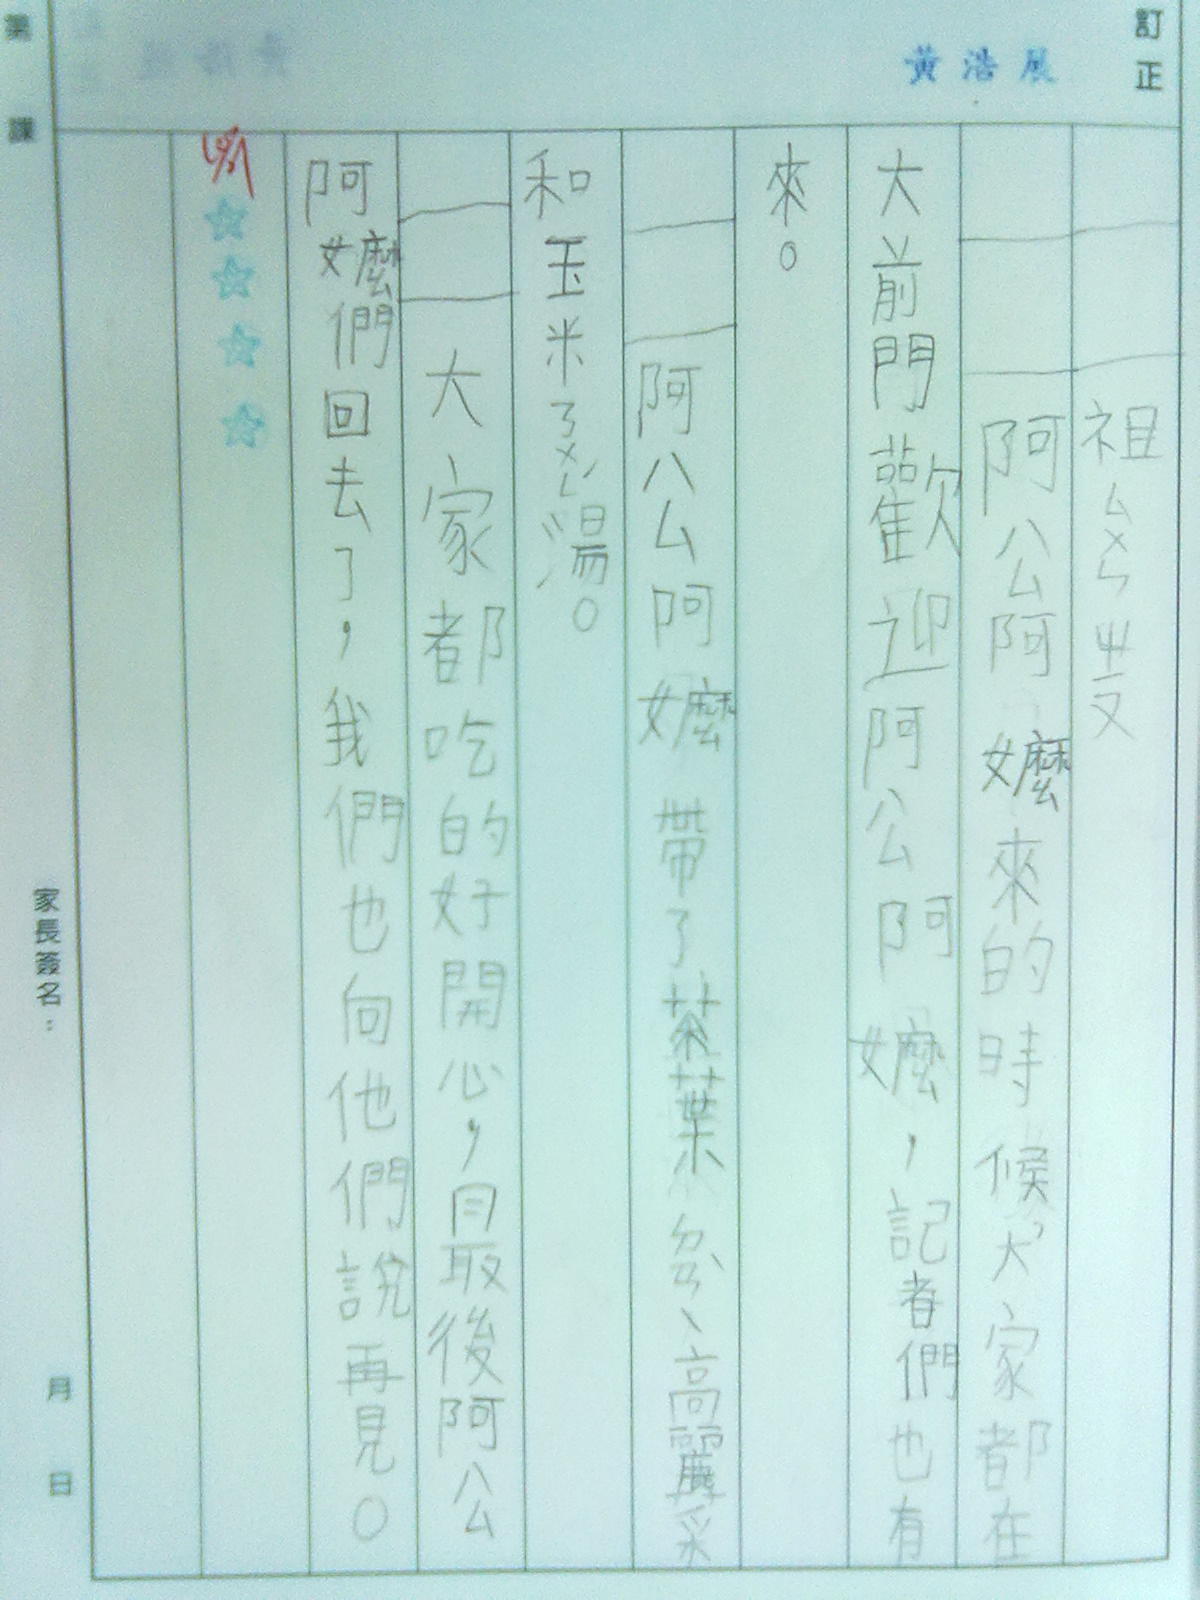 訂正
黃浩展
祖ㄙㄨㄣ ㄓ叏
阿公阿嬤來的時候,大家都在
大前門歡迎阿公阿嬤,記者們也有
來。
阿公阿嬤帶了茶葉ㄉㄢˋ、高麗菜
和玉米ㄋㄨㄥˊ湯。
大家都吃的好開心,最後阿公
阿嬤們回去了,我們也向他們說再見。
第 課
家長簽名:
月 日